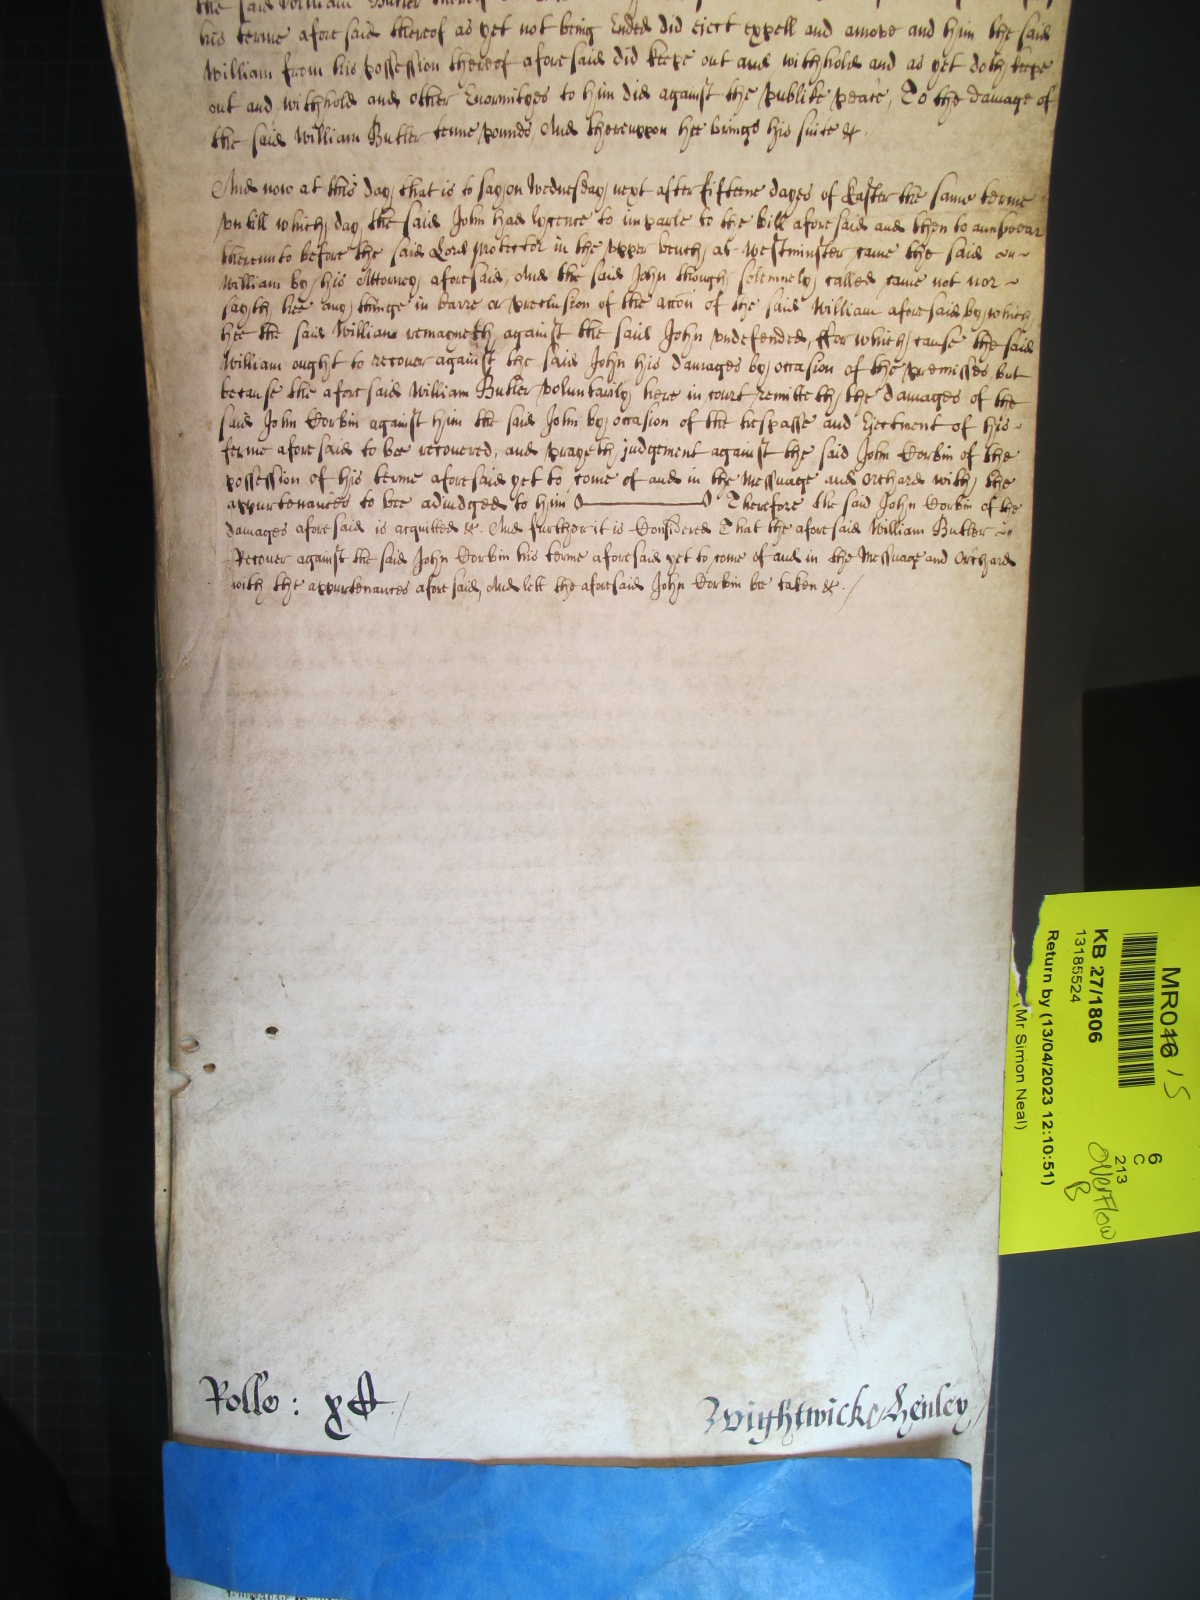 the said William Butler thereof
his terme afore said thereof as yet not being Ended did eject expell and amove and him the said
William from his possession thereof aforesaid did keepe out and withhold and as yet doth keepe
out and withhold and other Enormityes to him did against the publike peace, To the damage of
the said William Butler tenne pounds, And thereuppon hee brings his suite &c.
And now at this day, that is to say, on Wednesday next after fifteene dayes of Easter the same terme
vntill which day the said John had lycence to imparle to the bill aforesaid and then to aunswear
therevnto before the said Lord Protector in the vpper bench at Westminster came the said
William by his Attorney aforesaid, And the said John though solemnely called came not nor
sayth hee any thinge in barre or preclusion of the accon of the said William aforesaid by which
hee the said William remayneth against the said John vndefended, ffor which cause the said
William ought to recover against the said John his damages by occasion of the premisses but
because the aforesaid William Butler voluntarily here in court remitteth the damages of the
said John Corbin against him the said John by occasion of the trespasse and Ejectment of his
terme aforesaid to bee recovered, and prayeth judgement against the said John Corbin of the
possession of his terme aforesaid yet to come of and in the Messuage and orchard with the
appurtenances to bee adiudged to him Therefore the said John Corbin of the
damages aforesaid is acquitted &c. And further it is Considered That the aforesaid William Butler
Recover against the said John Corbin his terme aforesaid yet to come of and in the Messuage and Orchard
with the appurtenances aforesaid, And lett the aforesaid John Corbin bee taken &c.
Rollo:
Wightwicke, Henley
MR046 /5
KB 27/1806
13185524
Return by (13/04/2023 12:10:51)
(Mr Simon Neal)
6
C
213
Overflow
B